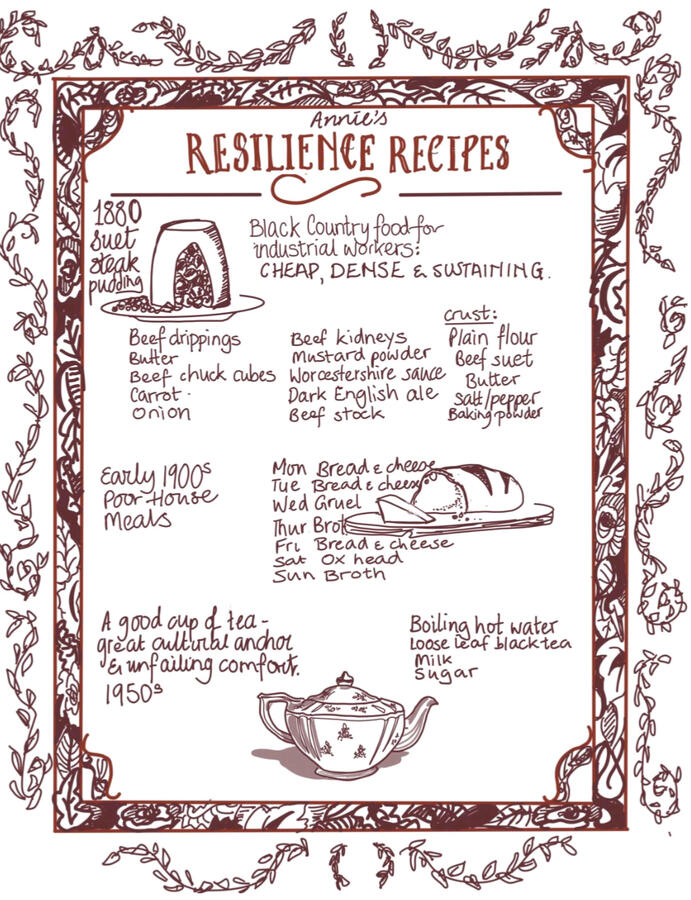 Annie's
RESILIENCE RECIPES
1880
suet
steak
pudding
Black Country food for
industrial workers:
CHEAP, DENSE & SUSTAINING.
Beef drippings
Butter
Beef chuck cubes
Carrot
Onion
Beef kidneys
Mustard powder
Worcestershire sauce
Dark English ale
Beef stock
crust:
Plain flour
Beef suet
Butter
Salt/pepper
Baking powder
Early 1900s
Poor-House
Meals
Mon Bread & cheese
Tue Bread & cheese
Wed Gruel
Thur Brot
Fri Bread & cheese
Sat Ox head
Sun Broth
A good cup of tea -
great cultural anchor
& unfailing comfort.
1950s
Boiling hot water
Loose leaf black tea
Milk
Sugar